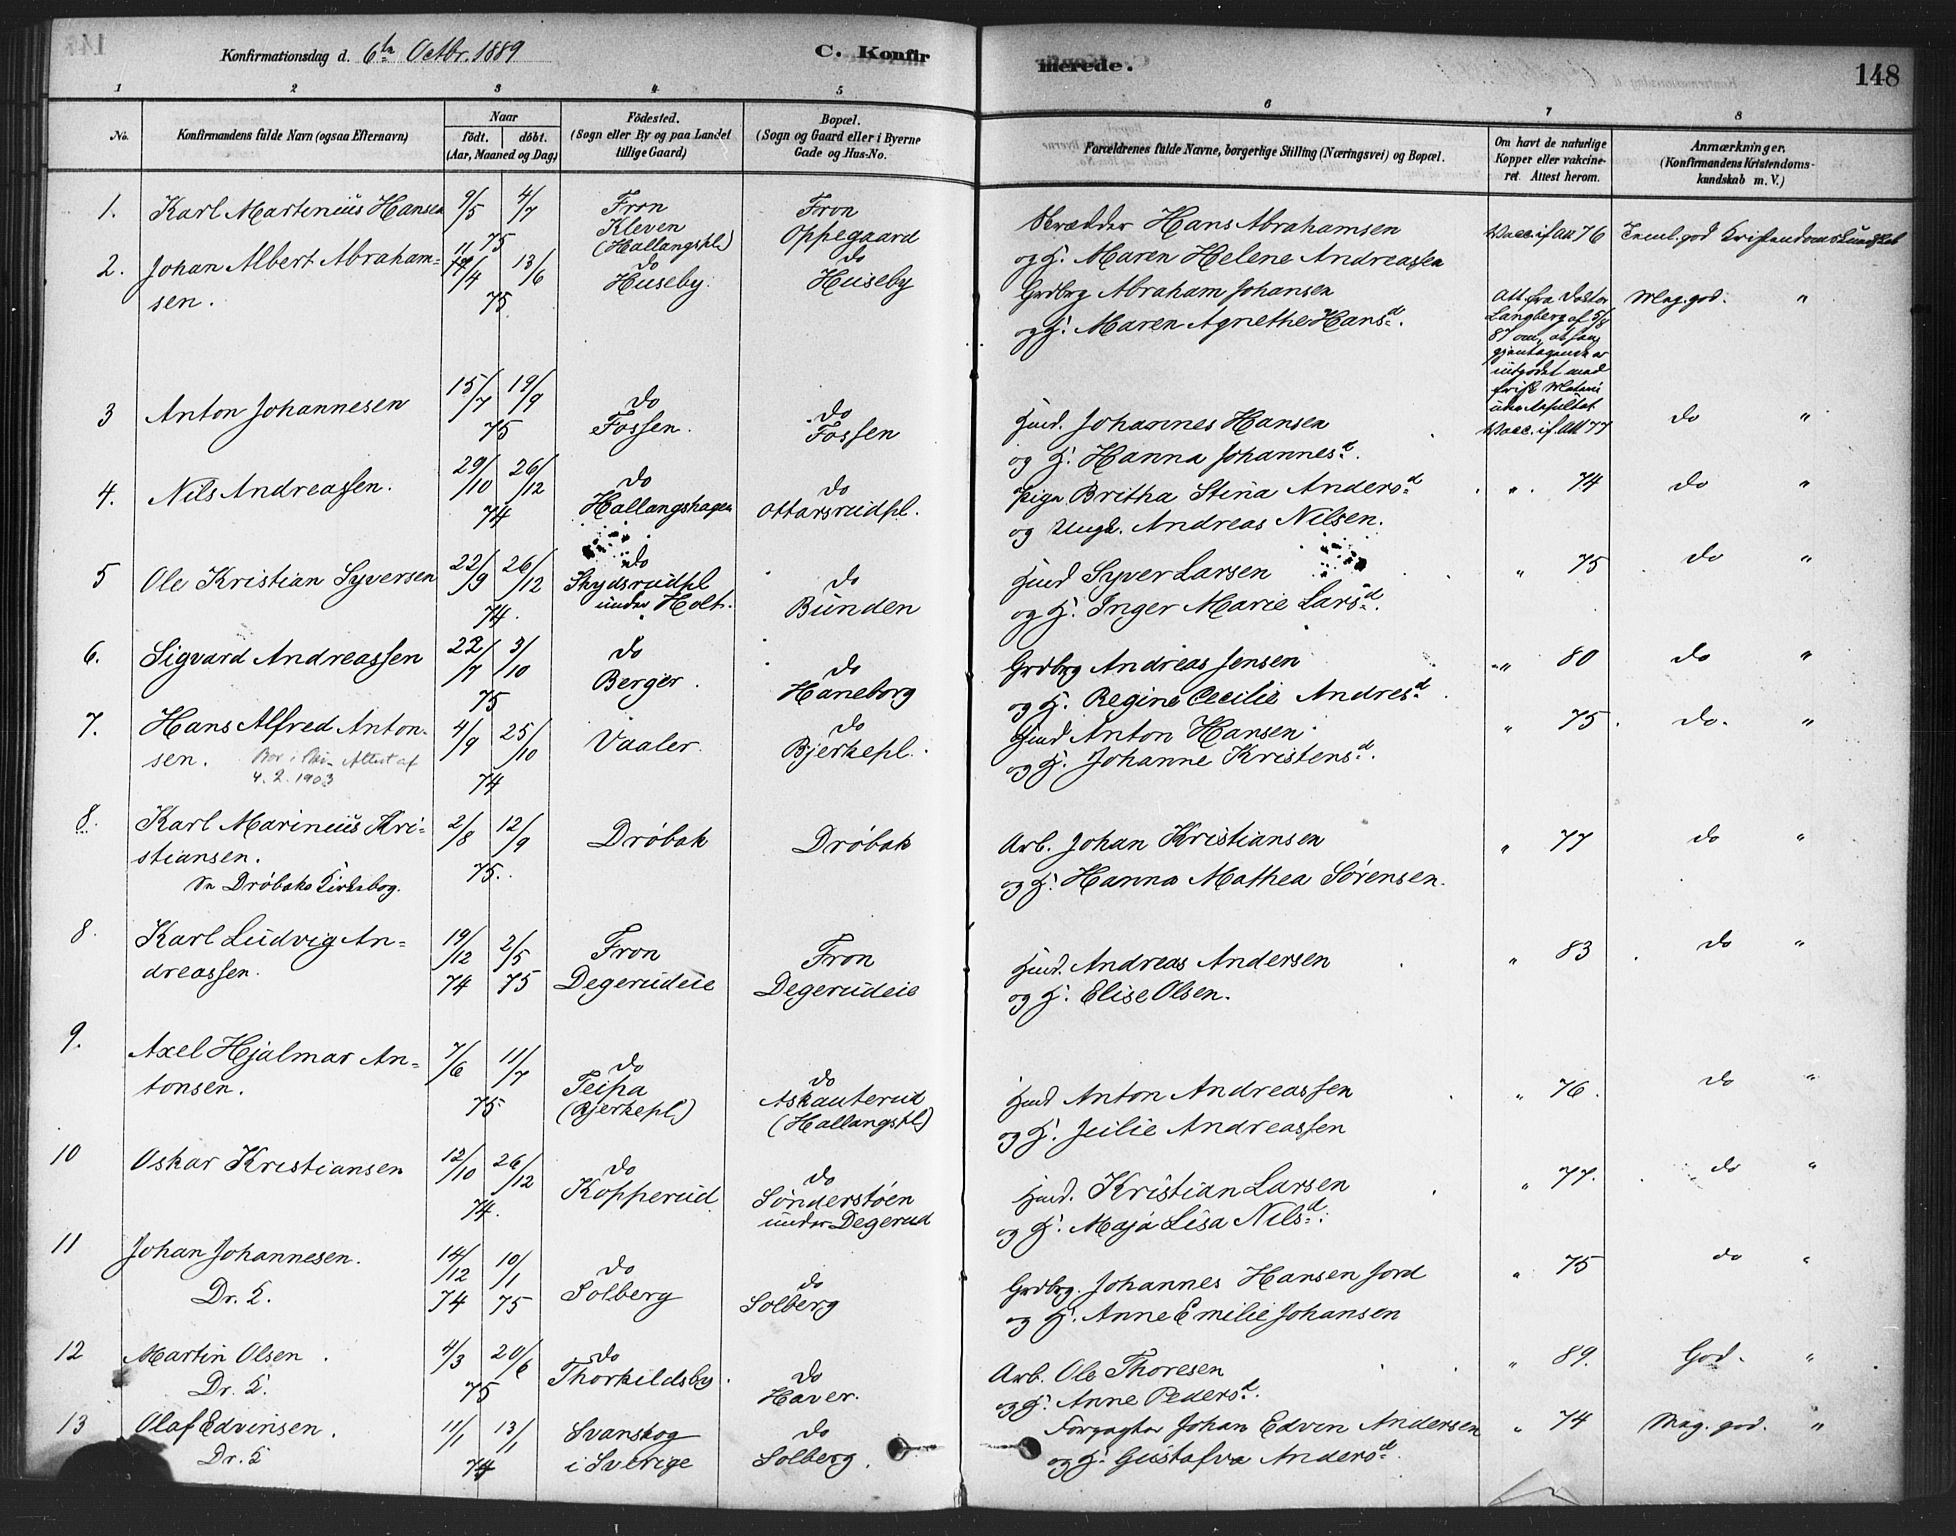 Konfirmationsdag d. 6te Octbr. 1889
C. Konfirmerede.
148
1 2 3 4 5 6 7 8
No.
Konfirmandens fulde Navn (ogsaa Efternavn)
Naar
födt. döbt.
(Aar, Maaned og Dag)
Födested.
(Sogn eller By og paa Landet
tillige Gaard)
Bopæl.
(Sogn og Gaard eller i Byerne
Gade og Hus-No.
Forældrenes fulde Navne, borgerlige Stilling (Næringsvei) og Bopæl.
Om havt de naturlige
Kopper eller vakcine-
ret. Attest herom.
Anmærkninger.
(Konfirmandens Kristendoms-
kundskab m. V.)
1. Karl Martinius Hansen 9/5 4/7 75 Fron Kleven (Hallangspl) Fron Oppegaard
Skrædder Hans Abrahamsen
og H. Maren Helene Andreassen
Vacc. if. att 76 Teml. god Kristendomskundskab
2. Johan Albert Abraham-
sen. 11/4 13/6 75. do Huseby. do Huseby
Grdbrg Abraham Johansen
og H. Maren Agnethe Hansd.
Att. fra Doktor
Langberg af 5/8
87 om, at han
gjentagende er
indpodet med
frisk Materie
uden Resultat
Mag. god. "
3 Anton Johannesen 15/7 19/9 75 do Fossen. do Fossen
Hmd. Johannes Hansen
og H. Hanna Johannesd.
Vacc. if. att 77 do "
4. Nils Andreassen. 29/10 26/12 74 do Hallangshagen do Ottarsrudpl.
Pige Britha Stina Andersd
og Ungk. Andreas Nilsen.
" 74 do "
5 Ole Kristian Syversen 22/9 26/12 74. do Skydsrudpl under Holt. do Bunden
Hmd Syver Larsen
og H. Inger Marie Larsd.
" 75 do "
6. Sigvard Andreassen 22/7 3/10 75 do Berger. do Haneborg
Grdbrg Andreas Jensen
og H. Regine Cecilie Andresd.
" 80 do "
7. Hans Alfred Anton-
sen. Attest af
4.2.1903
4/9 25/10 74 Vaaler. do Bjerkepl.
Hmd Anton Hansen.
og H. Johanne Kristensd.
" 75. do. "
8. Karl Marinius Kri-
stiansen.
Se Drøbaks Kirkebog.
2/8 12/9 75. Drøbak Drøbak
Arb. Johan Kristiansen
og H. Hanna Mathea Sørensen.
" 77 do "
8. Karl Ludvig An-
dreassen. 19/12 74 2/5 75 Fron Degerudeie Fron Degerudeie
Hmd. Andreas Andersen
og H. Elise Olsen.
" 83 do "
9. Axel Hjalmar An-
tonsen. 7/6 11/7 75 do Teipa (Bjerkepl) do Askauterud (Hallangspl)
Hmd Anton Andreassen
og H. Julie Andreassen
" 76. do "
10 Oskar Kristiansen 12/10 26/12 74. do Kopperud. do Sønderstøen under Degerud
Hmd. Kristian Larsen
og H. Maja Lisa Nilsd.
" 77. do "
11 Johan Johannesen.
Dr. K. 14/12 74 10/1 75 do Solberg do Solberg
Grdbrg. Johannes Hansen Jord
og H. Anne Emilie Johansen
" 75 do "
12 Martin Olsen.
Dr. K. 4/3 20/6 75 do Thorkildsby. do Haver.
Arb. Ole Thoresen
og H. Anne Pedersd.
" 89. God. "
13 Olaf Edvinsen.
Dr. K 11/1 13/1 74 Svanskog i Sverige do Solberg.
Forpagter Johan Edvin Andersen
og H. Gustafva Andersd.
" 74 Mag. god. "